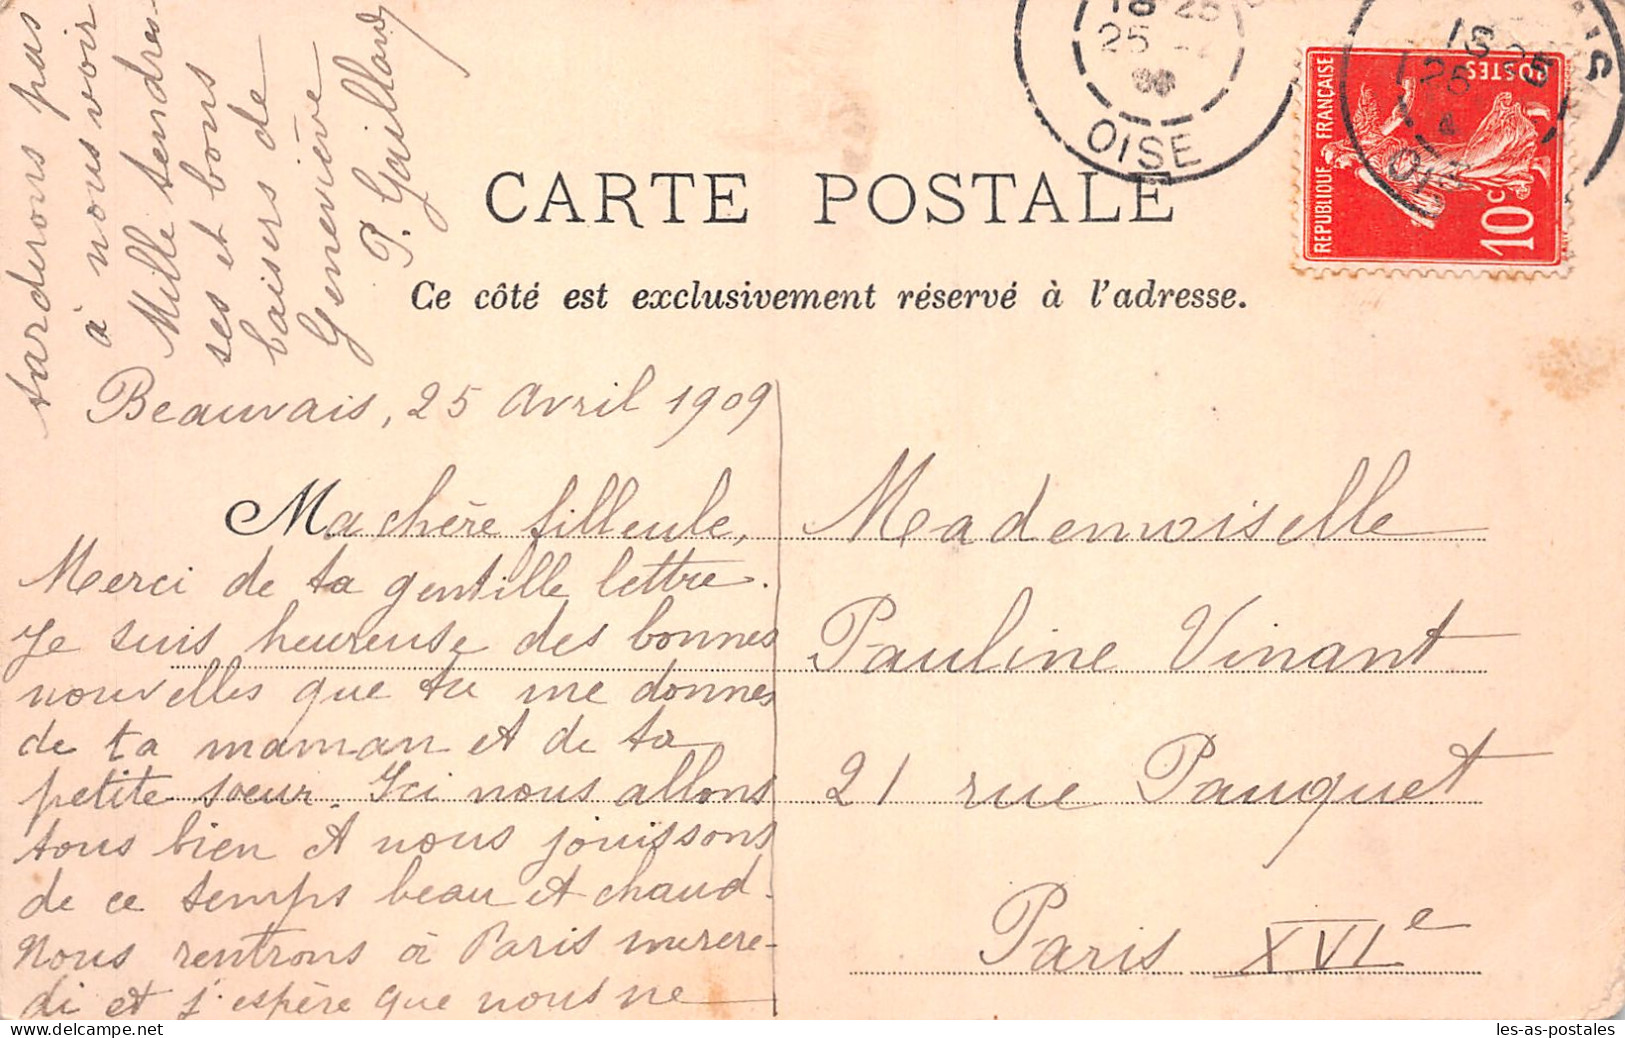 CARTE POSTALE
Ce côté est exclusivement réservé à l'adresse.
18 25
25
OISE
18 25
25
4
OIS
IS
POSTES
REPUBLIQUE FRANÇAISE
10 c
Beauvais, 25 Avril 1909
Ma chère filleule,
Merci de ta gentille lettre.
Je suis heureuse des bonnes
nouvelles que tu me donnes
de ta maman et de ta
petite sœur. Ici nous allons
tous bien et nous jouissons
de ce temps beau et chaud.
Nous rentrons à Paris mercre-
di et j'espère que nous ne
tarderons pas
à nous voir
Mille tendres-
ses et bons
baisers de
Geneviève
P. Gaillard
Mademoiselle
Pauline Vinant
21 rue Pauquet
Paris XVIe
les-as-postales